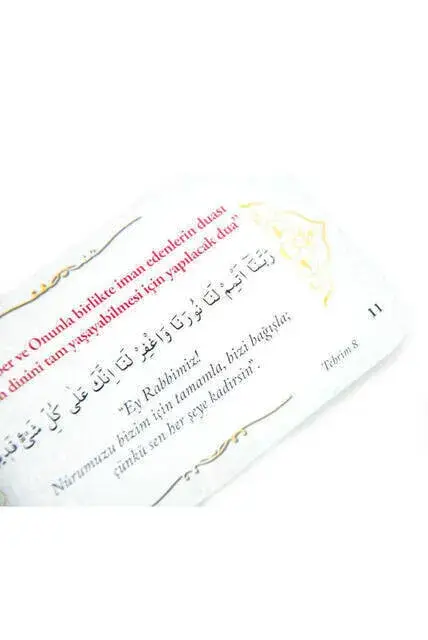 ber ve Onunla birlikte iman edenlerin duası
dinini tam yaşayabilmesi için yapılacak dua"
رَبَّنَا اَتْمِمْ لَنَا نُورَنَا وَاغْفِرْ لَنَا اِنَّكَ عَلٰى كُلِّ شَيْءٍ
"Ey Rabbimiz!
Nûrumuzu bizim için tamamla, bizi bağışla;
çünkü sen her şeye kadirsin".
Tehrim 8
11